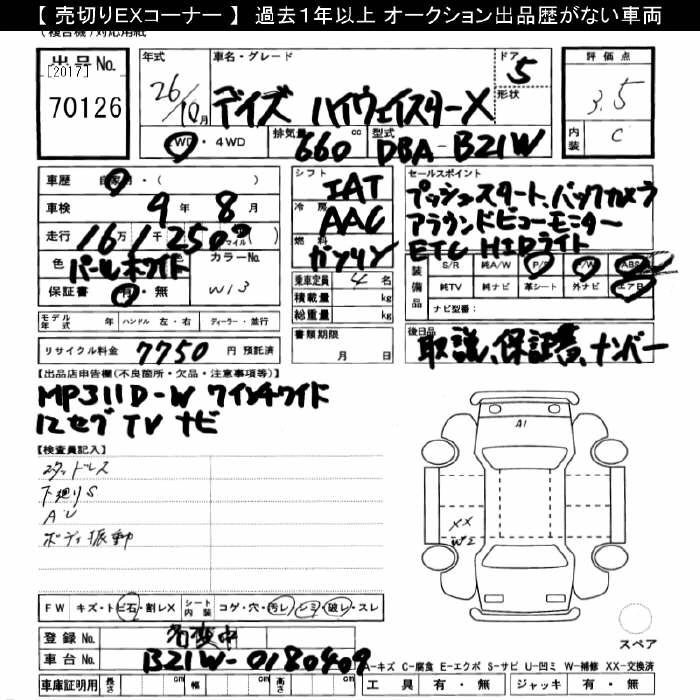 【 売切りEXコーナー 】 過去１年以上 オークション出品歴がない車両
(複合機)対応用紙
出品No.
[2017]
70126
年式
26/10月
車名・グレード
デイズ ハイウェイスターX
ドア
5
形状
評価点
3.5
内装
C
2WD・4WD
排気量
660 cc
型式
DBA-B21W
車歴 自家用・( )
車検 9年 8月
走行 16万1250マイル
色
パールホワイト
カラーNo.
W13
保証書 有・無
シフト
IAT
冷房
AAC
燃料
ガソリン
乗車定員 4名
積載量 kg
総重量 kg
セールスポイント
プッシュスタート、バックカメラ
アラウンドビューモニター
ETC HIDライト
装備品
S/R 純A/W P/S P/W ABS
純TV 純ナビ 革シート 外ナビ エアB
ナビ型番:
モデル年式 年 ハンドル 左・右 ディーラー・並行
リサイクル料金 7750 円 預託済
書類期限
月 日
後日品
取説、保証書、ナンバー
【出品店申告欄(不良箇所・欠品・注意事項等)】
MP311D-W ワイド
12セグ TV ナビ
【検査員記入】
スタッドレス
下廻りS
AU
ボディ振動
A1
XX
W2
FW キズ・トビ石・割レX
シート内装 コゲ・穴・汚レ・シミ・破レ・スレ
登録No. 名変中
車台No. B21W-0180409
スペア
A-キズ C-腐食 E-エクボ S-サビ U-凹ミ W-補修 XX-交換済
車庫証明用 長さ cm 幅 cm 高さ cm
工具 有・無 ジャッキ 有・無